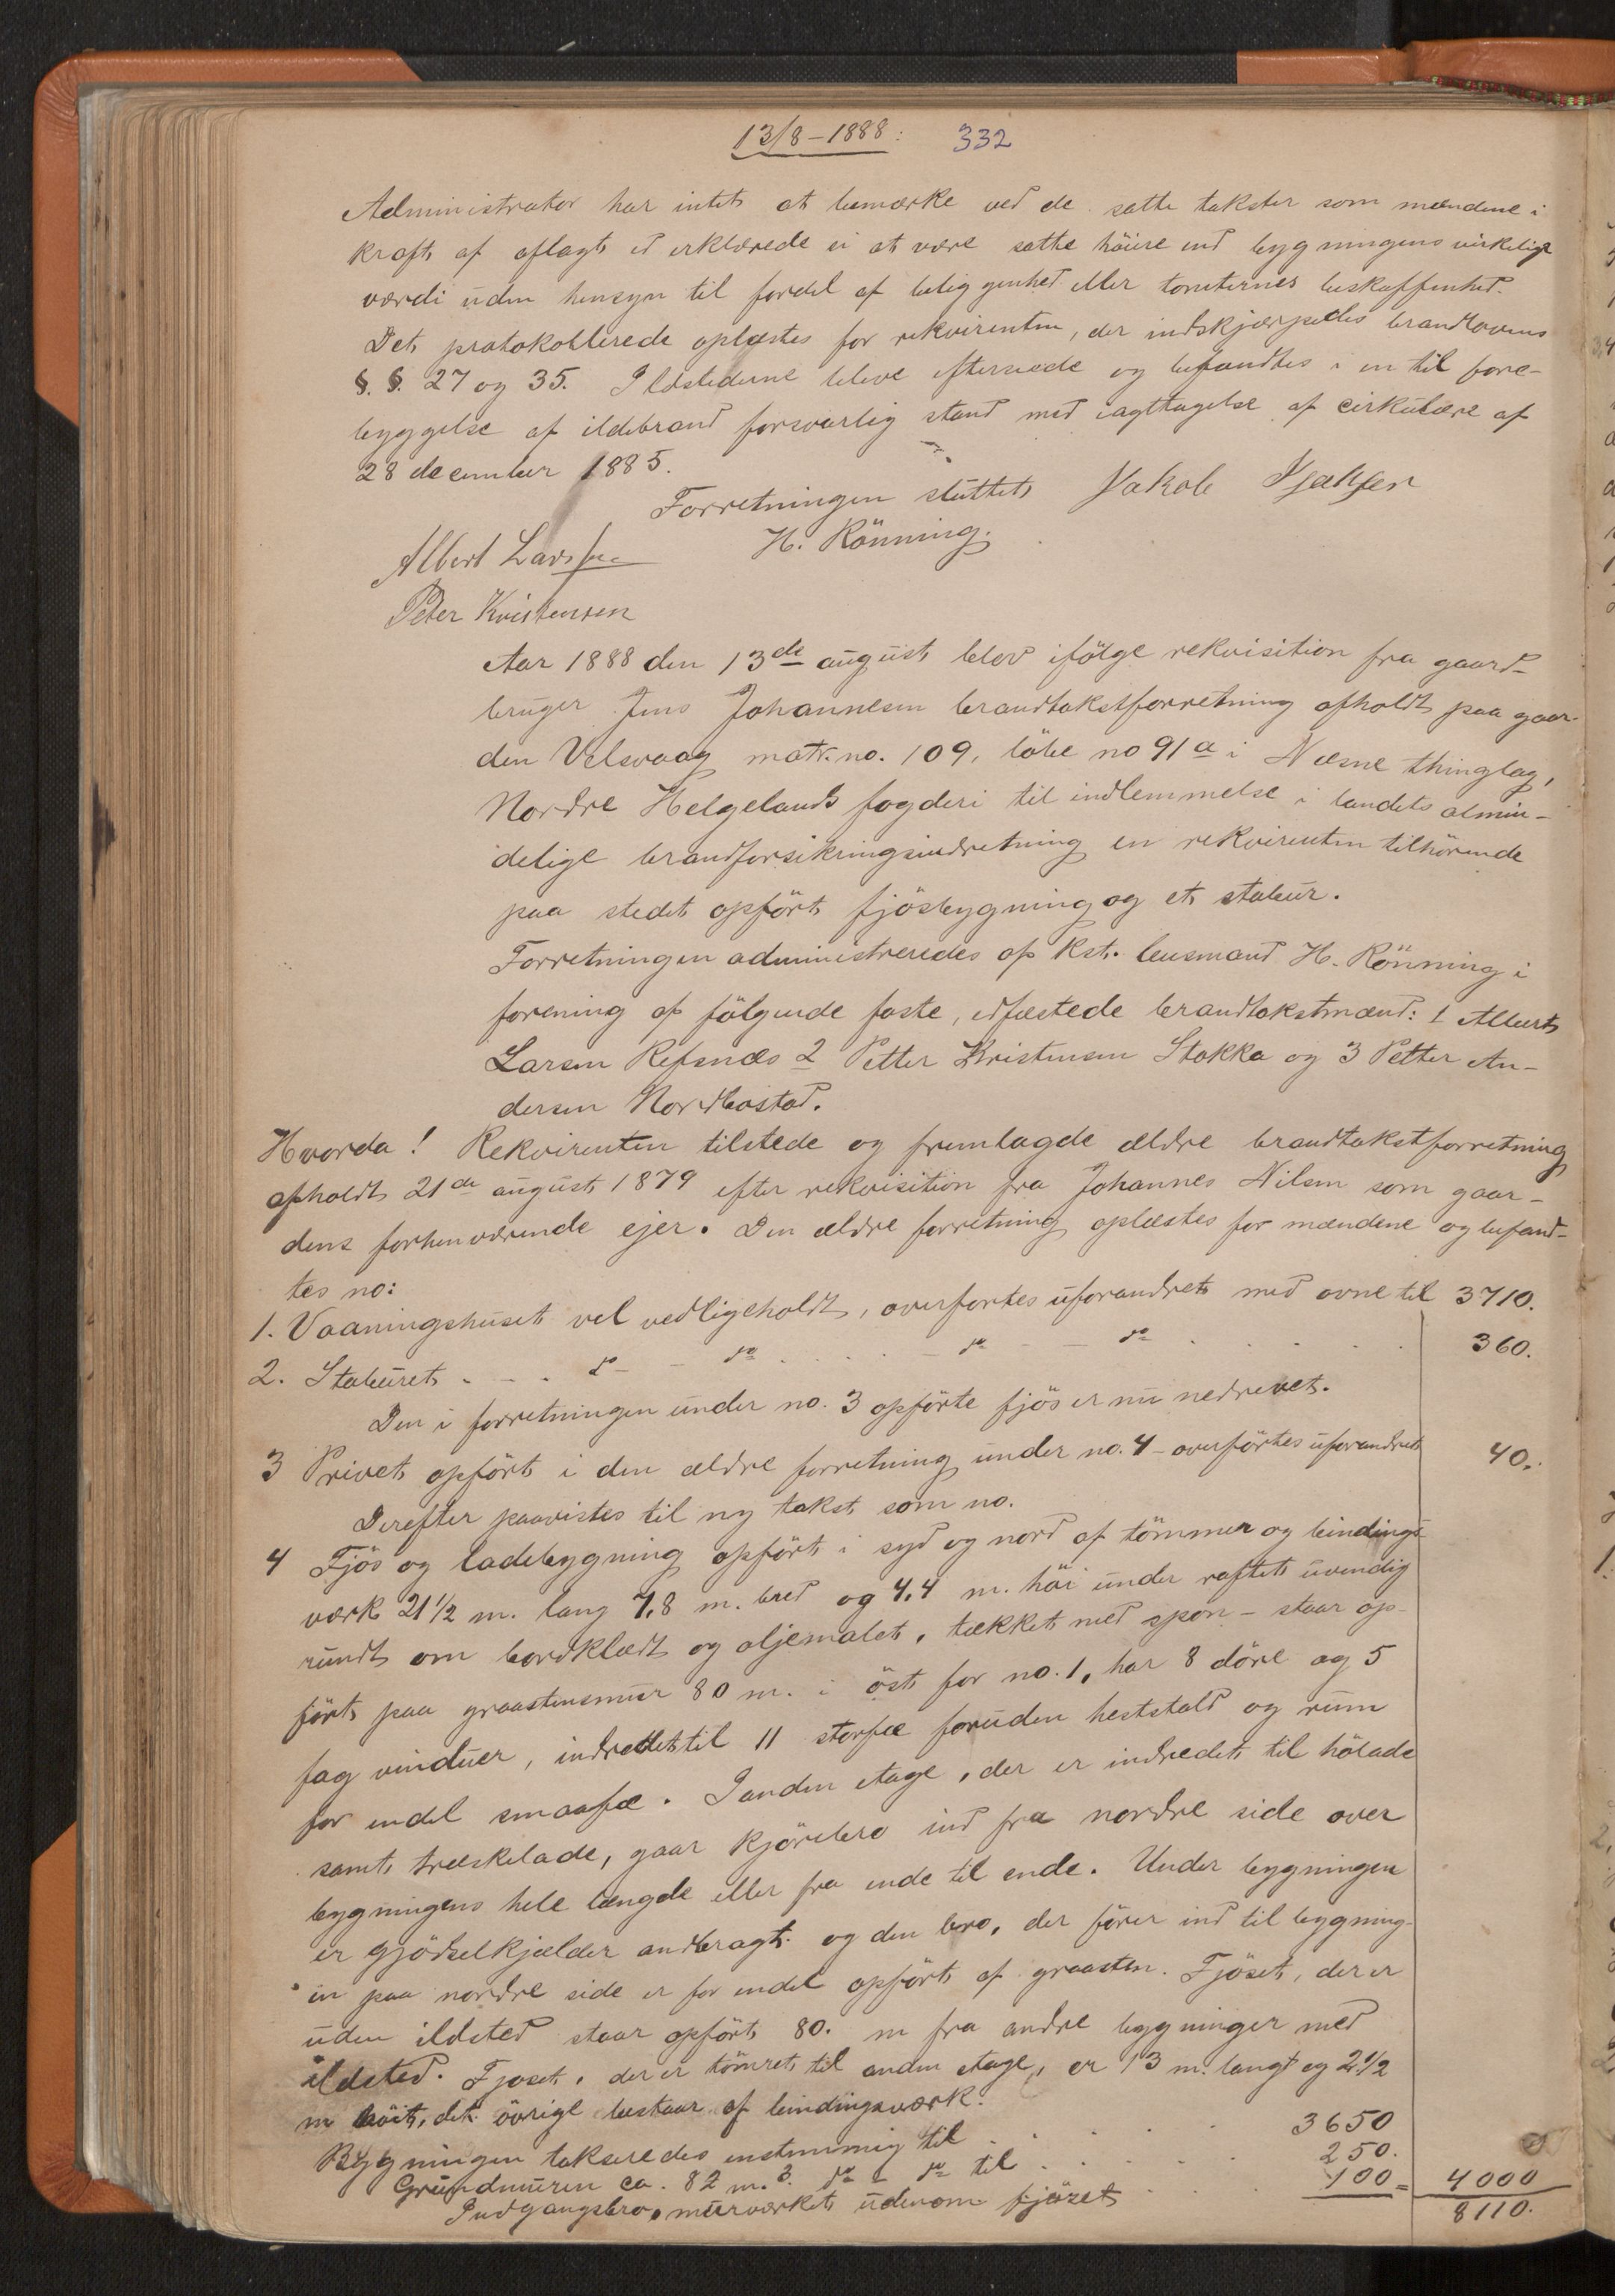 13/8-1888: 332
Administrator har intet at bemærke ved de satte takster som mændene i
kraft af aflagt ed erklærede ei at være satte höiere end bygningens virkelige
værdi uden hensyn til fordel af beliggenhed eller tomternes beskaffenhed.
Det protokollerede oplæstes for rekvirenten, der indskjærpedes brandlovens
§.§. 27 og 35. Ildstederne bleve efterseede og befandtes i en til fore-
byggelse af ildebrand forsvarlig stand med iagttagelse af cirkulære af
28 december 1885.
Forretningen sluttet Jakob Isaksen
Albert Larsen H. Rönning.
Peter Kristensen
Aar 1888 den 13de august blev ifölge rekvisition fra gaard-
bruger Jens Johannesen brandtakstforretning afholdt paa gaar-
den Velsvaag matr. no. 109, löbe no 91a i Næsne thinglag,
Nordre Helgelands fogderi til indlemmelse i landets almin-
delige brandforsikringsindretning en rekvirenten tilhörende
paa stedet opfört fjösbygning og et stabur.
Forretningen administreredes af kst. lensmand H. Rönning i
forening af fölgende faste, edfæstede brandtakstmænd: 1 Albert
Larsen Refsnæs 2 Petter Kristensen Stokka og 3 Petter An-
dersen Nordbostad.
Hvorda! Rekvirenten tilstede og fremlagde ældre brandtakstforretning
afholdt 21de august 1879 efter rekvisition fra Johannes Nilsen som gaar-
dens forhenværende ejer. Den ældre forretning oplæstes for mændene og befand-
tes no:
1. Vaaningshuset vel vedligeholdt, overfortes uforandret med ovne til 3710.
2. Staburet . - . do - do . . . . - do - - do . . . . . 360.
Den i forretningen under no. 3 opförte fjös er nu nedrevet.
3 Privet opfört i den ældre forretning under no. 4 - overförtes uforandret 40.
Derefter paavistes til ny takst som no.
4 Fjös og ladebygning opfört i syd og nord af tömmer og bindings-
værk 21 1/2 m. lang 7,8 m. bred og 4,4 m. höi under raftet uvendig
rundt om bordklædt og oljemalet, tækket med spon - staar op-
fört paa graastensmur 80 m. i öst for no. 1, har 8 döre og 5
fag vinduer, indredet til 11 storfæ foruden heststald og rum
for endel smaafæ. I anden etage, der er indredet til hölade
samt træskelade, gaar kjörebro ind fra nordre side over
bygningens hele længde eller fra ende til ende. Under bygningen
er gjödselkjælder andbragt og den bro, der förer ind til bygning-
en paa nordre side er for endel opfört af graasten. Fjöset, der er
uden ildsted staar opfört 80. m fra andre bygninger med
ildsted. Fjoset, der er tömret til anden etage, er 13 m. langt og 2 1/2
m höit, det övrige bestaar af bindingsværk.
Bygningen takseredes enstemmig til . . . . . 3650
Grundmuren ca. 82 m.3. do - do til . . . . . 250.
Indgangsbro, murværket udenom fjöset . . . 100 = 4000
8110.